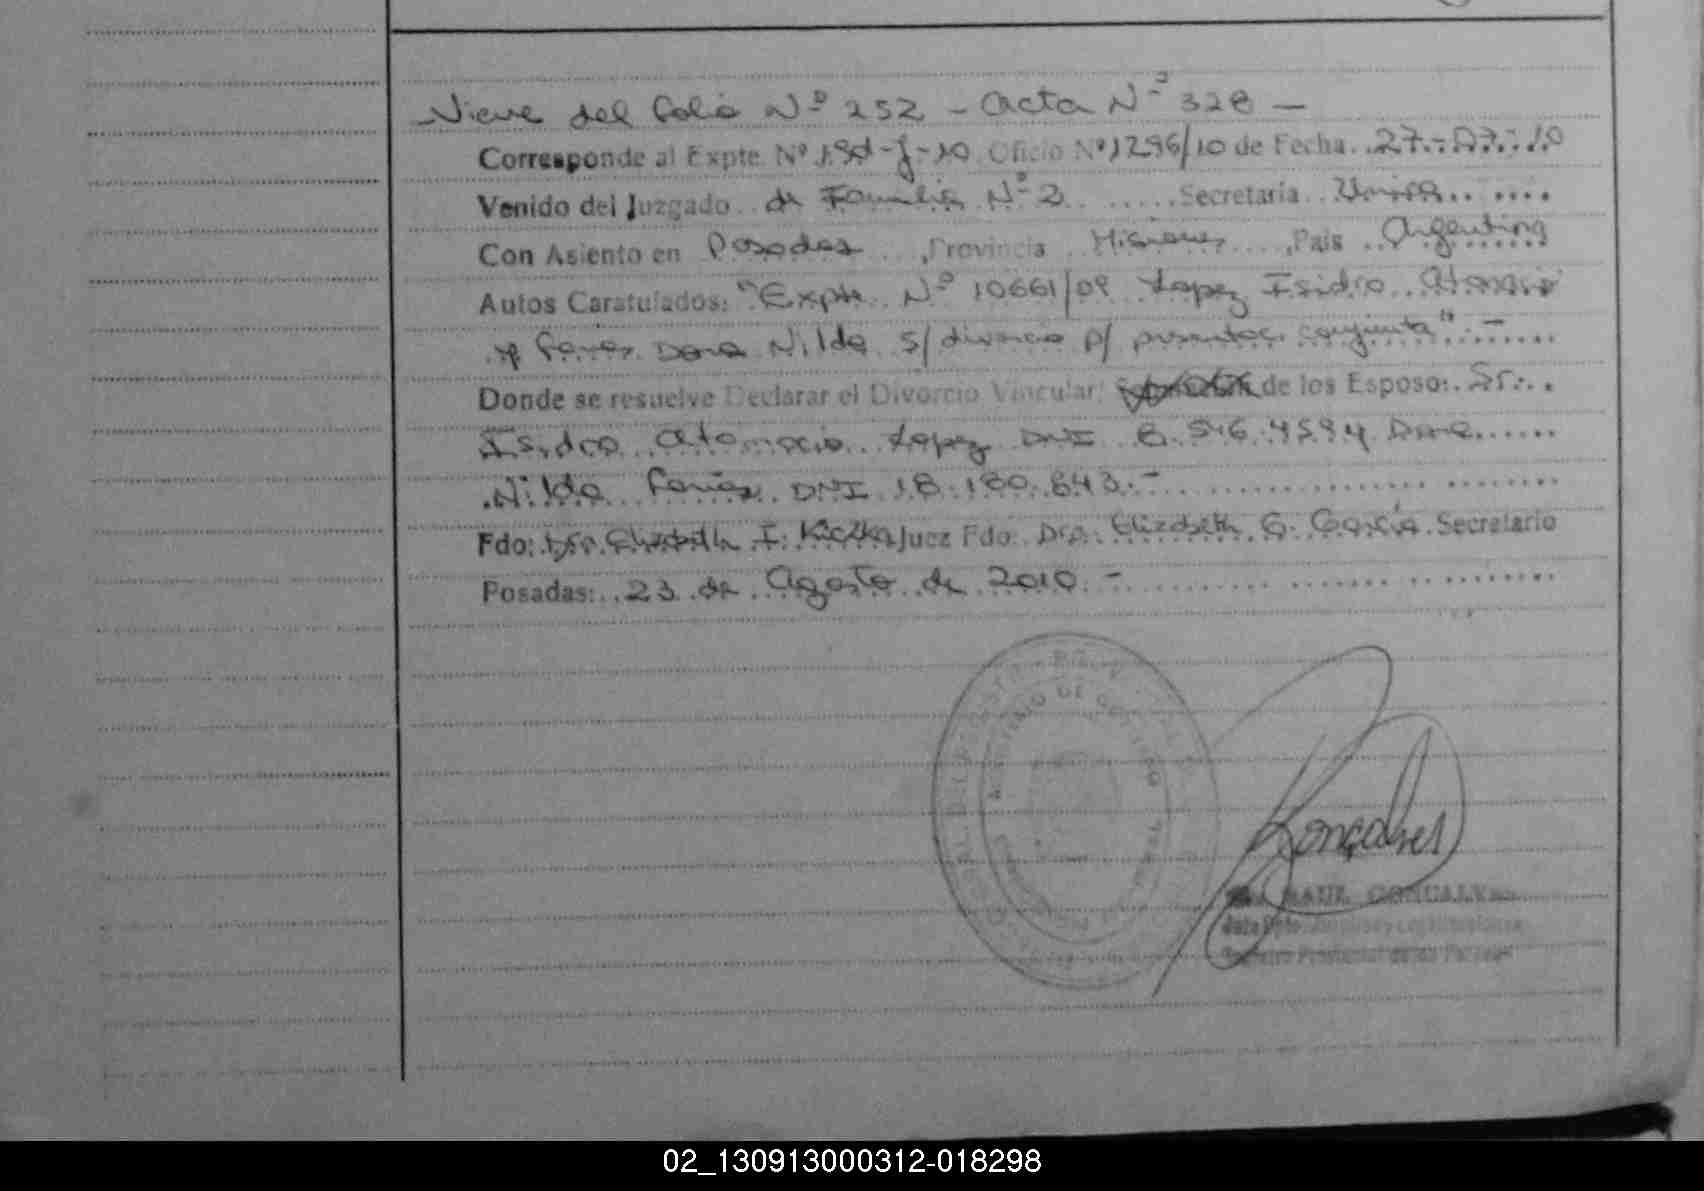 Viene del Folio Nº 252 - Acta Nº 328 -
Corresponde al Expte. Nº Oficio Nº 1296/10 de Fecha 27-07-10
Venido del Juzgado de Familia Nº 2 Secretaria Unica
Con Asiento en Posadas, Provincia Misiones, Pais Argentina
Autos Caratulados: "Expte. Nº 10661/09 Lopez Isidro Atanacio
y Dora Nilda s/divorcio p/ presentac. conjunta".-
Donde se resuelve Declarar el Divorcio Vincular: de los Esposo: Sr.
Isidro Atanacio Lopez DNI 8.546.4594 Dora
Nilda DNI 18.180.843.-
Fdo: Dra. Elizabeth I. Kiczka Juez Fdo: Dra. Elizabeth G. Garcia Secretario
Posadas: 23 de Agosto de 2010.-
MINISTERIO DE GOBIERNO
Gonçalves
RAUL GONCALVES
Registro Provincial de las Personas
02_130913000312-018298